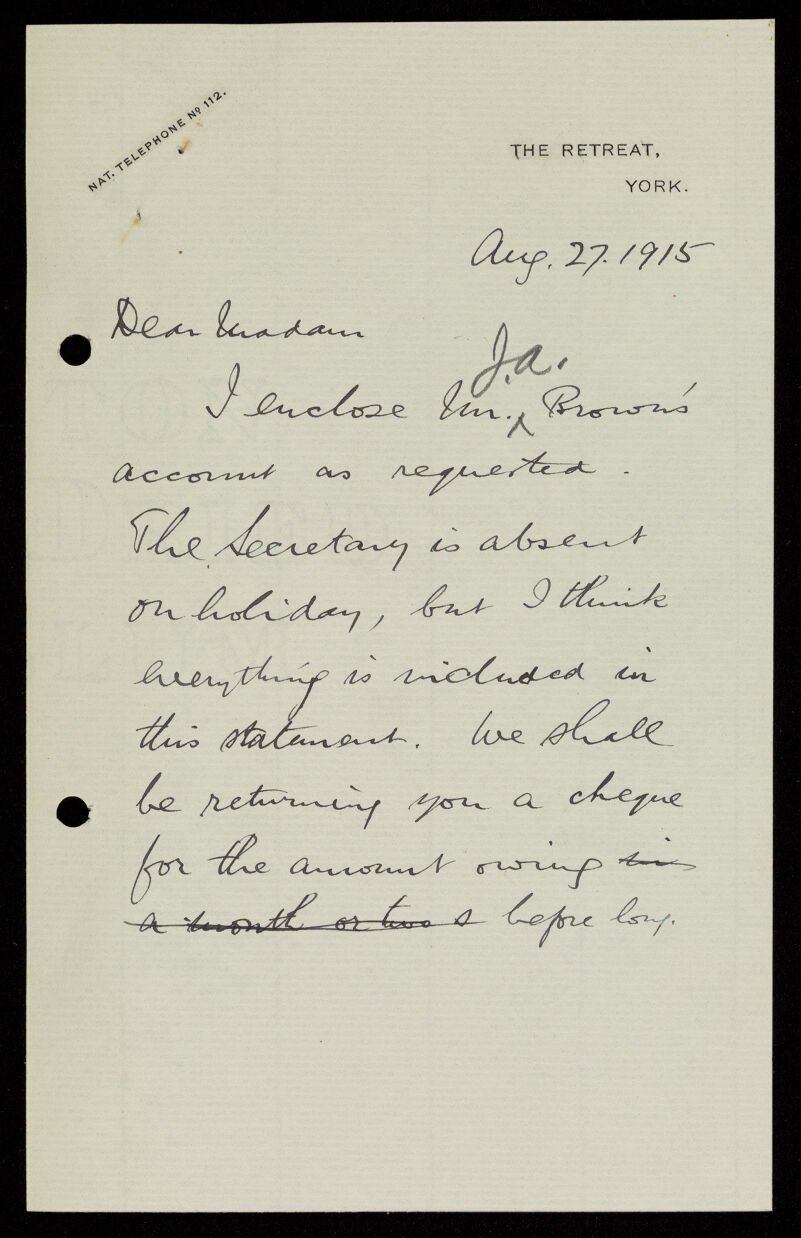 NAT. TELEPHONE Nº 112.
THE RETREAT,
YORK.
Aug. 27. 1915
Dear Madam
J.A.
I enclose Mr. Brown's
account as requested.
The Secretary is absent
on holiday, but I think
everything is included in
this statement. We shall
be returning you a cheque
for the amount owing in
a month or two s before long.